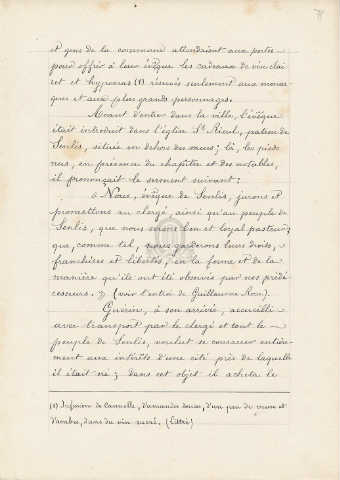 et gens de la commune attendaient aux portes
pour offrir à leur évêque les cadeaux de vin clai
ret et hypocras (1) réservés seulement aux monar-
ques et aux plus grands personnages.
Avant d'entrer dans la ville, l'évêque
était introduit dans l'église St Rieul, patron de
Senlis, située en dehors des murs; là, les pieds
nus, en présence du chapitre et des notables,
il prononçait le serment suivant:
« Nous, évêque de Senlis, jurons et
promettons au clergé, ainsi qu'au peuple de
Senlis, que nous serons bon et loyal pasteur;
que, comme tel, nous garderons leurs droits,
franchises et libertés, en la forme et de la
manière qu'ils ont été observés par nos prédé
cesseurs. » (voir l'entrée de Guillaume Rose).
Guérin, à son arrivée, accueilli
avec transport par le clergé et tout le
peuple de Senlis, voulut se consacrer entière-
ment aux intérêts d'une cité près de laquelle
il était né; dans cet objet il acheta le
(1) Infusion de cannelle, d'amandes douces, d'un peu de musc et
d'ambre, dans du vin sucré. (Littré)